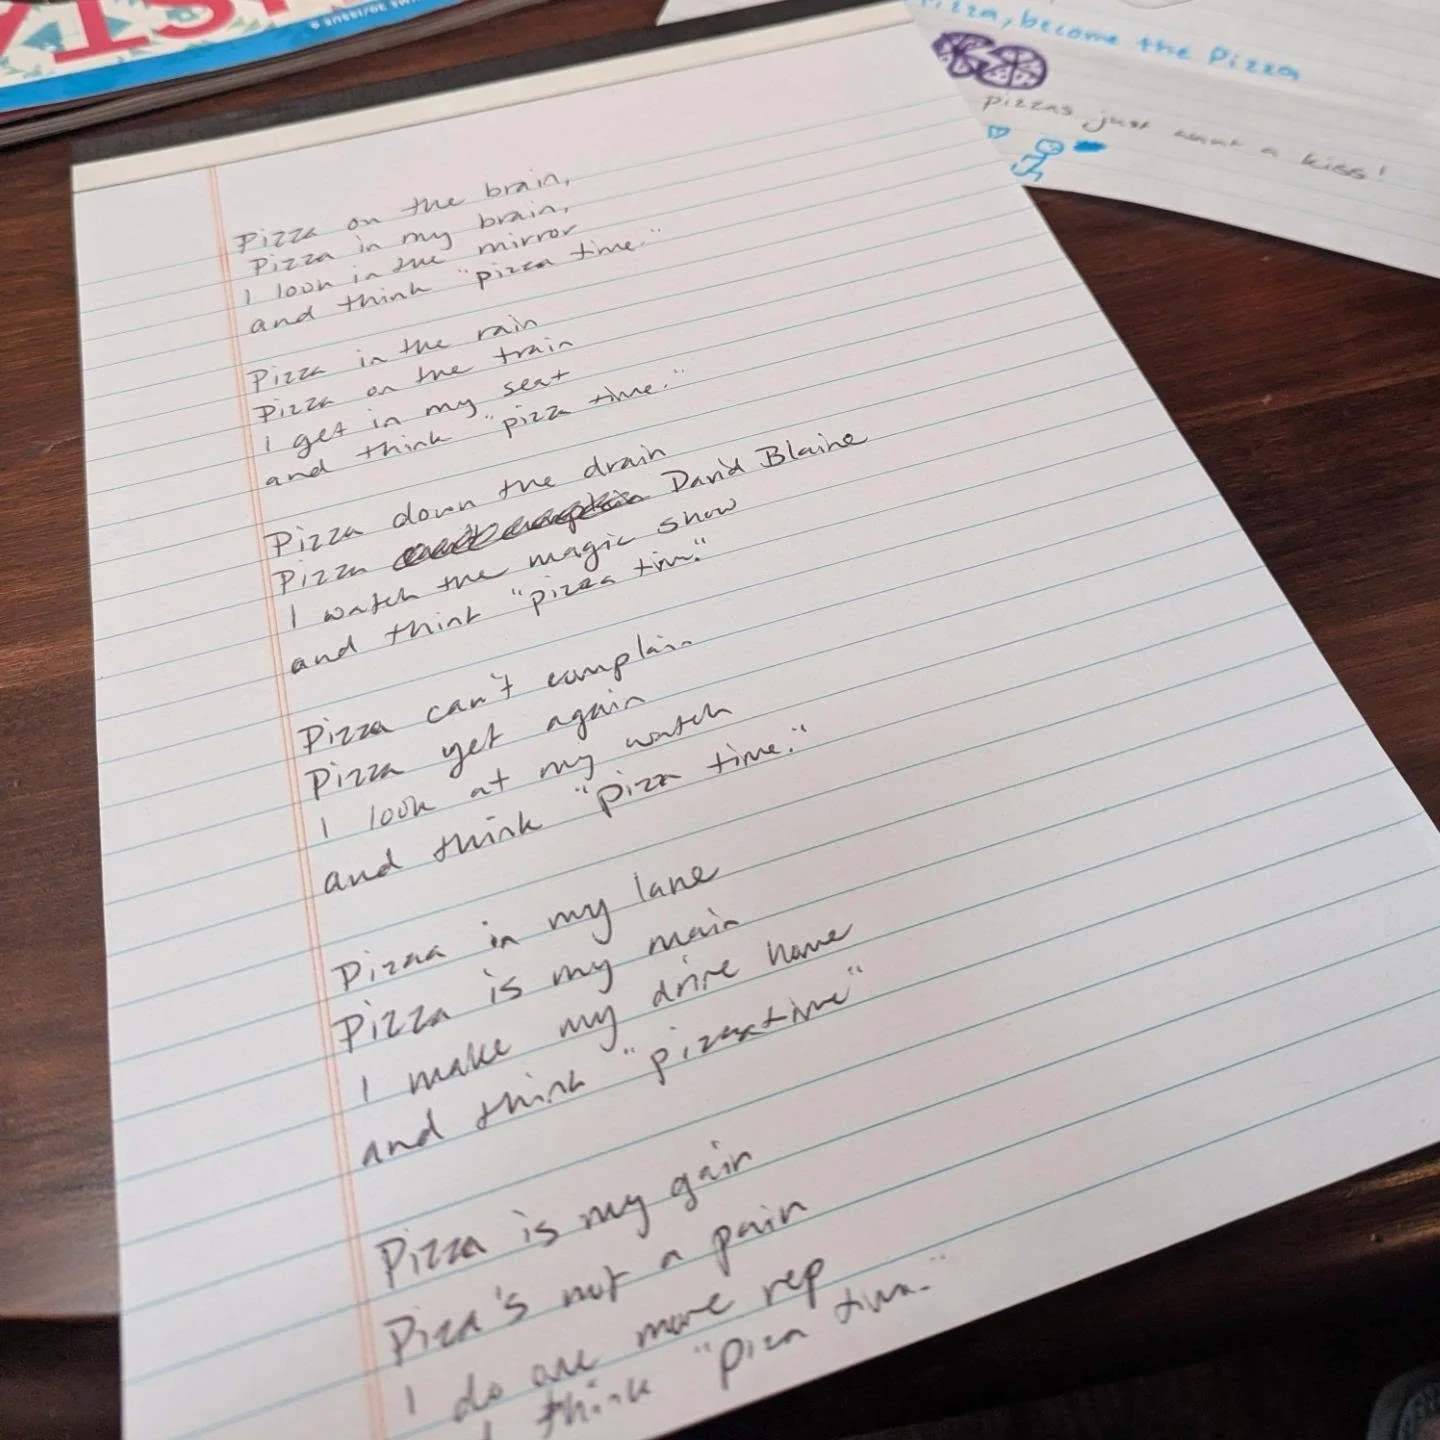 Pizza on the brain,
Pizza in my brain,
I look in the mirror
and think "pizza time."
Pizza in the rain
Pizza on the train
I get in my seat
and think "pizza time."
Pizza down the drain
Pizza David Blaine
I watch the magic show
and think "pizza tim."
Pizza can't complain
Pizza yet again
I look at my watch
and think "pizza time."
Pizza in my lane
Pizza is my main
I make my drive home
and think "pizza time"
Pizza is my gain
Pizza's not a pain
I do one more rep
think "pizza time."
pizza, become the Pizza
pizzas just want a kiss!